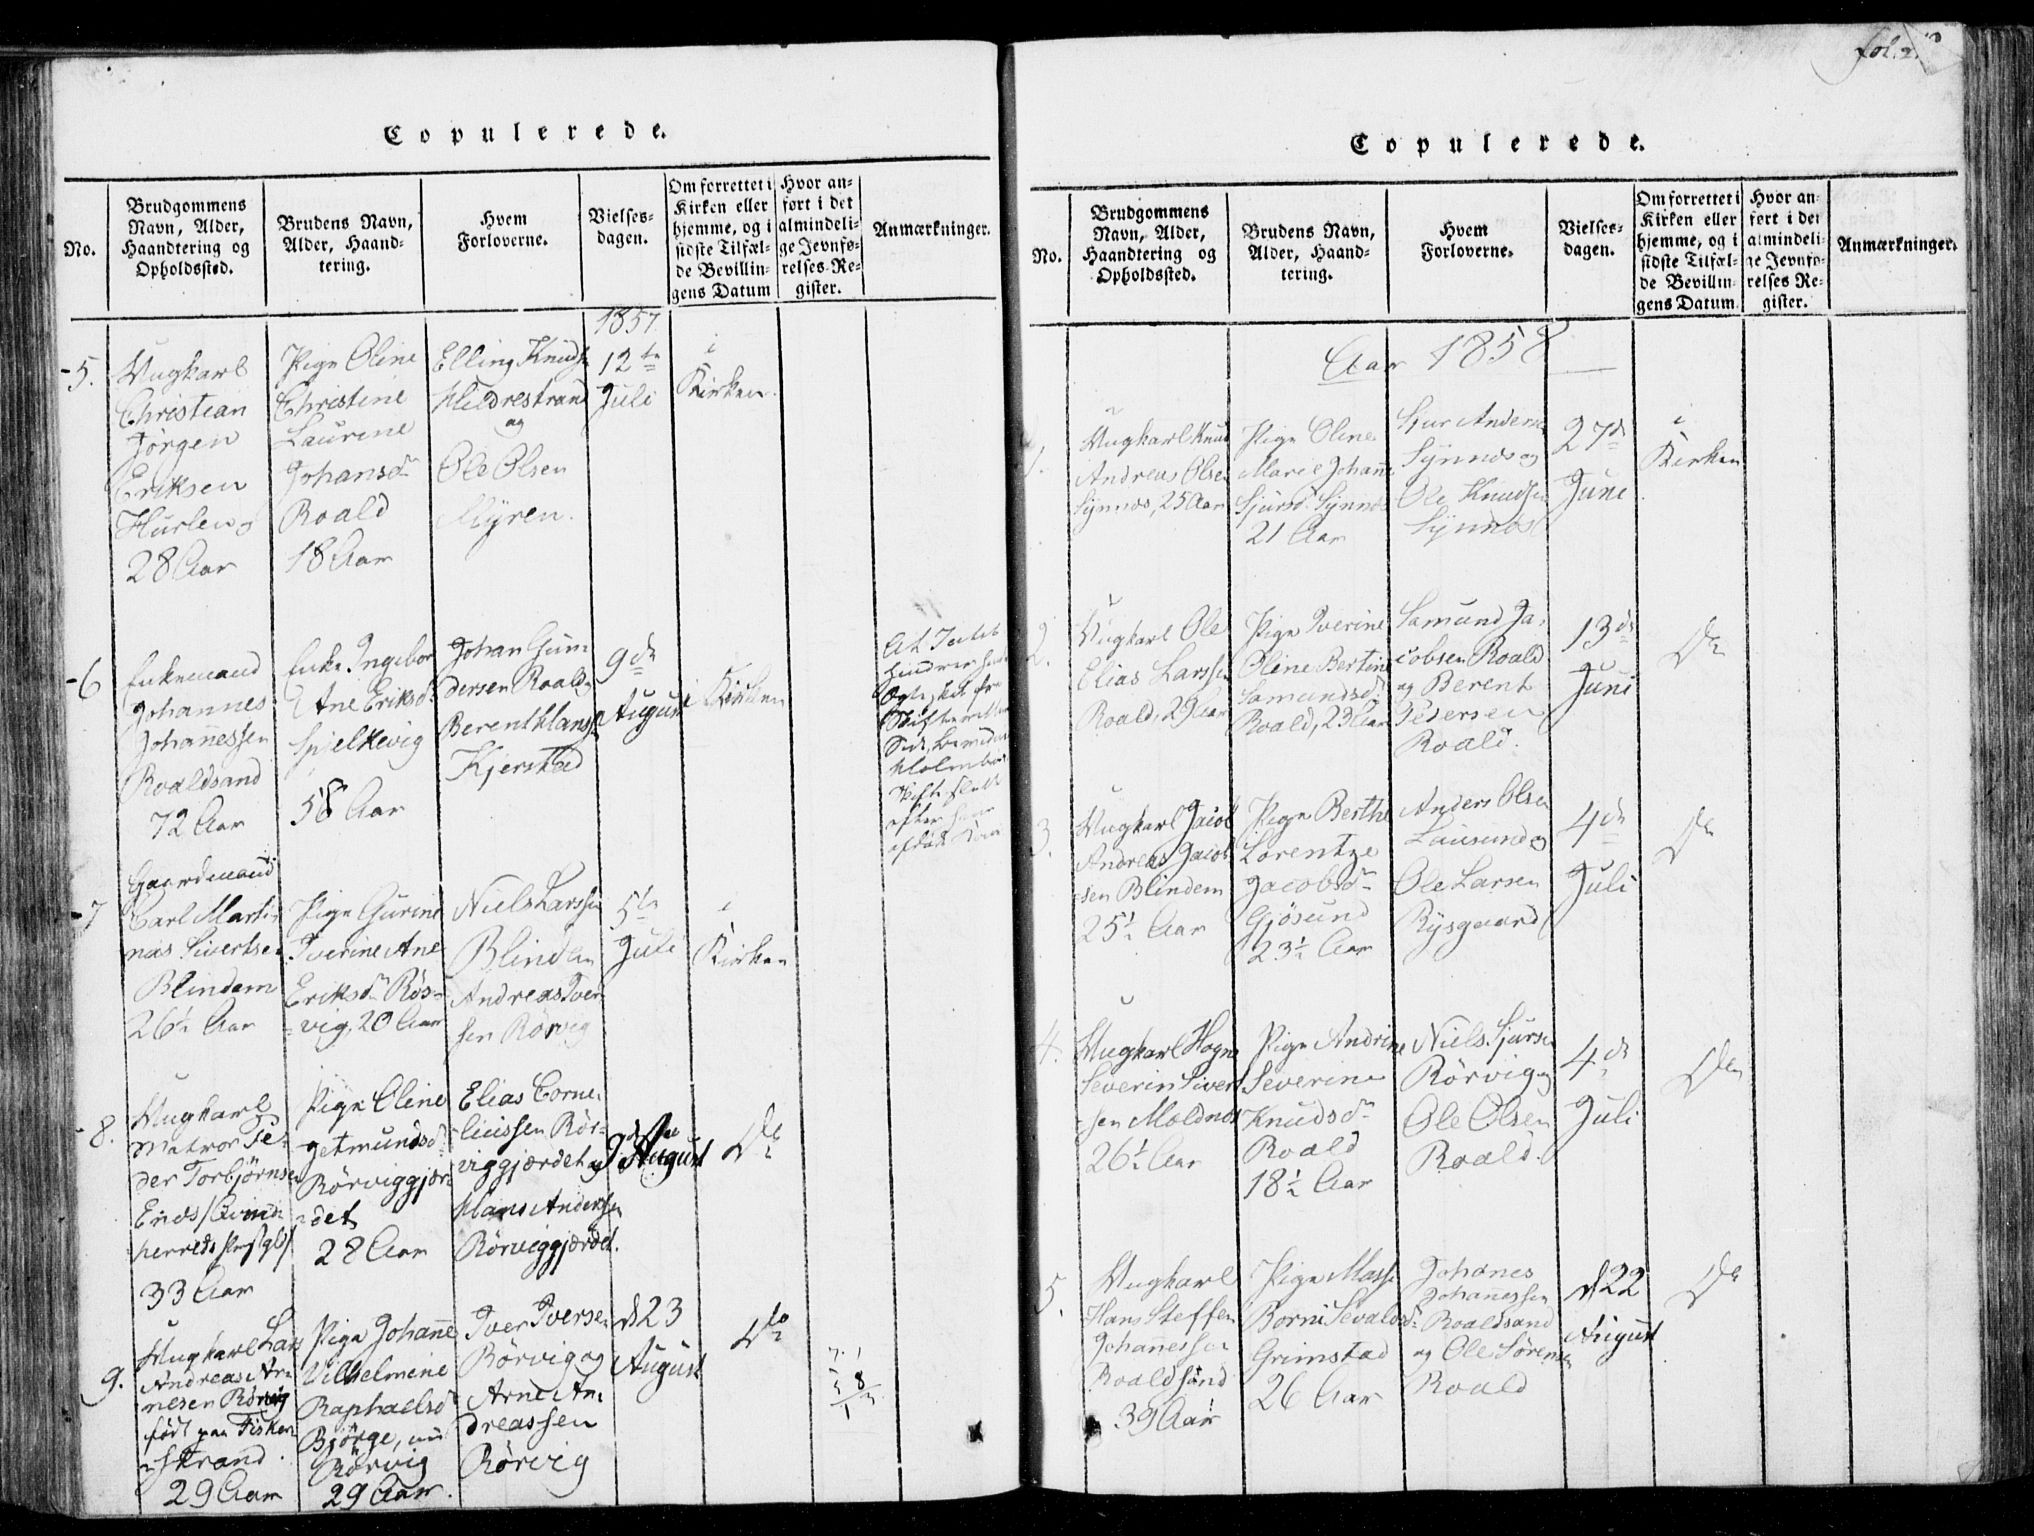 Copulerede.
No.
Brudgommens
Navn, Alder,
Haandtering og
Opholdssted.
Brudens Navn,
Alder, Haand-
tering.
Hvem
Forloverne.
Vielses-
dagen.
Om forrettet i
Kirken eller
hjemme, og i
sidste Tilfæl-
de Bevillin-
gens Datum
Hvor an-
ført i det
almindeli-
ge Jevnfø-
relses-Re-
gister.
Anmærkninger.
1857
5.
Ungkarl
Christian
Jørgen
Eriksen
Hurlen
28 Aar
Pige Oline
Christine
Laurine
Johansdr
Roald
18 Aar
Elling Knuds
Mildrestrand
og
Ole Olsen
Myren.
12te
Juli
i
Kirken.
6
Enkemand
Johannes
Johannessen
Roaldsand
72 Aar
Enke Ingebor
Ane Eriksdr
Spjelkevig
58 Aar
Johan Gun-
dersen Roald
Berent Hanss
Kjerstad
9de
August
i
Kirken
At Intet
efter
7
Gaardmand
Carl Marti-
nus Sivertsen
Blindem
26½ Aar
Pige Gurine
Iverine Ane
Eriksdr Rör-
vig, 20 Aar
Niels Larssen
Blindem
Andreas Iver-
sen Rörvig
5te
Juli
i
Kirken
8.
Ungkarl
Matros Pe-
der Torbjørnsen
33 Aar
Pige Oline
Getmundsdr
Rörviggjær-
det
28 Aar
Elias Corne-
liussen Rör-
viggjærdet og
Hans Andersen
Rörviggjærdet.
9de
August
Do
9.
Ungkarl Lars
Andreas Ar-
nesen Rörvig
født paa Fisker-
strand.
29 Aar
Pige Johanne
Vilhelmine
Raphaelsdr
Bjørge, nu
Rörvig
29 Aar.
Iver Iversen
Rörvig og
Arne An-
dreassen
Rörvig
d 23
August
Do
Copulerede.
No.
Brudgommens
Navn, Alder,
Haandtering og
Opholdssted.
Brudens Navn,
Alder, Haand-
tering.
Hvem
Forloverne.
Vielses-
dagen.
Om forrettet i
Kirken eller
hjemme, og i
sidste Tilfæl-
de Bevillin-
gens Datum.
Hvor an-
ført i det
almindeli-
ge Jevnfø-
relses Re-
gister.
Anmærkninger.
Aar 1858
1.
Ungkarl Knud
Andreas Olsen
Synnæs, 25 Aar
Pige Oline
Marie Johanne
Sjursdr Synnæs
21 Aar
Sjur Andersen
Synnæs og
Ole Knudsen
Synnæs
27de
Juni
i
Kirken
2.
Ungkarl Ole
Elias Larssen
Roald, 29 Aar
Pige Iverine
Oline Bertine
Samundsdr
Roald, 23 Aar
Samund Ja-
cobsen Roald
og Berent
Pedersen
Roald.
13de
Juni
Do
3.
Ungkarl Jacob
Andreas Jacob-
sen Blindem
25½ Aar
Pige Berthe
Lorentze
Jacobsdr
Gjøsund
23½ Aar
Anders Olsen
Lausund og
Ole Larsen
Rysgaard
4de
Juli
Do
4.
Ungkarl Hogne
Severin Sivert-
sen Moldnæs
26½ Aar
Pige Andrine
Severine
Knudsdr
Roald
18½ Aar
Niels Sjursen
Rörvig og
Ole Olsen
Roald.
4de
Juli
Do
5.
Ungkarl
Hans Steffen
Johannessen
Roaldsand
39 Aar
Pige Masse
Borni Sevaldsdr
Grimstad
26 Aar
Johannes
Johannessen
Roaldsand
og Ole Sørensen
Roald
d 22
August
Do